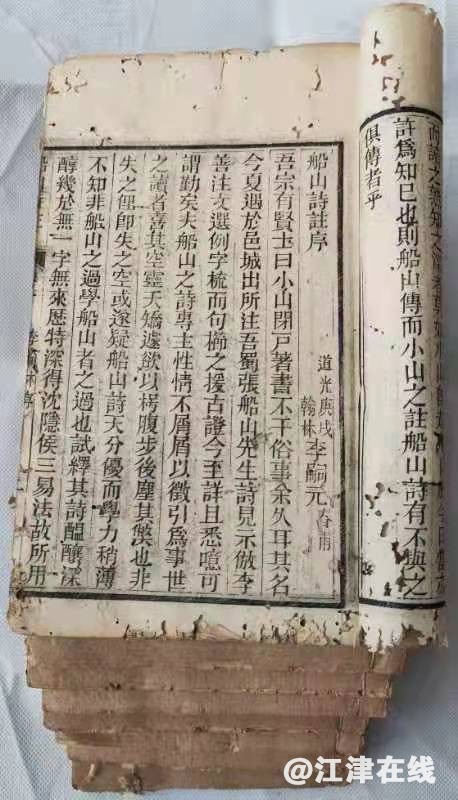 而讀之無知之
許爲知已也則船山傳而小山之註船山詩有不與之
俱傳者乎
船山詩註序
道光庚戌
翰林李嗣元春甫
吾宗有賢士曰小山閉戸著書不干俗事余久耳其名
今夏遇於邑城出所注吾蜀張船山先生詩見示倣李
善注文選例字梳而句櫛之援古證今至詳且悉噫可
謂勤矣夫船山之詩專主性情不屑屑以徵引爲事世
之讀者喜其空靈夭矯遽欲以枵腹步後塵其弊也非
失之俚卽失之空或遂疑船山詩天分優而學力稍薄
不知非船山之過學船山者之過也試繹其詩醞釀深
醇幾於無一字無來歷特深得沈隱侯三易法故所用
@江津在线